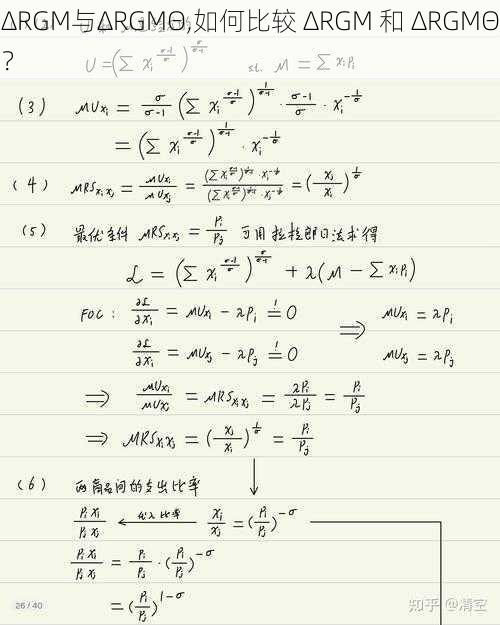 ∆RGM与∆RGMΘ,如何比较 ∆RGM 和 ∆RGMΘ
?
U=(∑ xᵢ^((σ-1)/σ))^(σ/(σ-1)) s.t. M = ∑ xᵢpᵢ
(3) MUxᵢ = σ/(σ-1) (∑ xᵢ^((σ-1)/σ))^(1/(σ-1)) · (σ-1)/σ · xᵢ^(-1/σ)
= (∑ xᵢ^((σ-1)/σ))^(1/(σ-1)) · xᵢ^(-1/σ)
(4) MRSxᵢxⱼ = MUxᵢ/MUxⱼ = (∑ xᵢ^((σ-1)/σ))^(1/(σ-1)) · xᵢ^(-1/σ) / (∑ xᵢ^((σ-1)/σ))^(1/(σ-1)) · xⱼ^(-1/σ) = (xⱼ/xᵢ)^(1/σ)
(5) 最优条件 MRSxᵢxⱼ = Pᵢ/Pⱼ 可用拉格朗日法求得
ℒ = (∑ xᵢ^((σ-1)/σ))^(σ/(σ-1)) + λ(M − ∑ xᵢpᵢ)
FOC: ∂ℒ/∂xᵢ = MUxᵢ − λPᵢ =! 0 ⟹ MUxᵢ = λPᵢ
∂ℒ/∂xⱼ = MUxⱼ − λPⱼ =! 0 MUxⱼ = λPⱼ
⟹ MUxᵢ/MUxⱼ = MRSxᵢxⱼ = λPᵢ/λPⱼ = Pᵢ/Pⱼ
⟹ MRSxᵢxⱼ = (xⱼ/xᵢ)^(1/σ) = Pᵢ/Pⱼ
(6) 两商品间的支出比率
Pᵢxᵢ/Pⱼxⱼ ← 代入比率 xᵢ/xⱼ = (Pᵢ/Pⱼ)^(-σ)
Pᵢxᵢ/Pⱼxⱼ = Pᵢ/Pⱼ · (Pᵢ/Pⱼ)^(-σ)
= (Pᵢ/Pⱼ)^(1-σ)
26 / 40
知乎 @清空